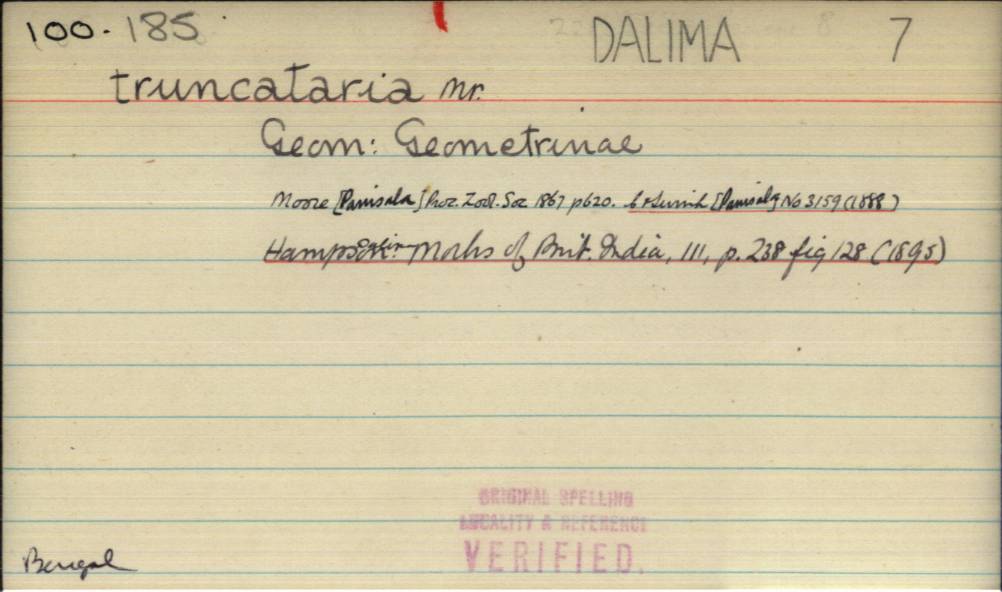 100.185 DALIMA 7
truncataria Mr.
Geom: Geometrinae
Moore [Panisala] Proc. Zool. Soc 1867 p620. [Panisala] No 3159 (1888)
Hampson Moths of Brit. India, III, p. 238 fig 128 (1895)
ORIGINAL SPELLING
LOCALITY & REFERENCE
VERIFIED.
Bengal